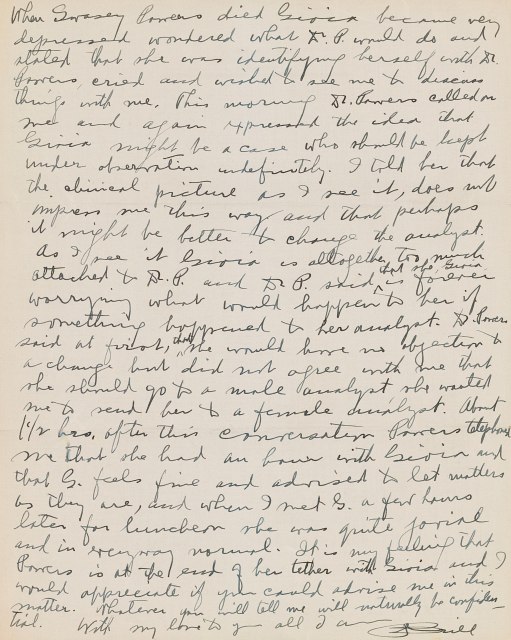 When Swasey Powers died Gioia became very
depressed wondered what Dr. P. would do and
stated that she was identifying herself with Dr.
Powers, cried and wished to see me to discuss
things with me. This morning Dr. Powers called on
me and again expressed the idea that
Gioia might be a case who should be kept
under observation indefinitely. I told her that
the clinical picture as I see it, does not
impress me this way and that perhaps
it might be better to change the analyst.
As I see it Gioia is altogether too much
attached to Dr. P. and Dr P. said that she, Gioia is forever
worrying what would happen to her if
something happened to her analyst. Dr. Powers
said at first, that she would have no objection to
a change but did not agree with me that
she should go to a male analyst she wanted
me to send her to a female analyst. About
1 1/2 hrs. after this conversation Powers telephoned
me that she had an hour with Gioia and
that G. feels fine and advised to let matters
as they are, and when I met G. a few hours
later for luncheon she was quite jovial
and in every way normal. It is my feeling that
Powers is at the end of her tether with Gioia and I
would appreciate if you could advise me in this
matter. Whatever you will tell me will naturally be confiden-
tial. With my love to you all I am Brill